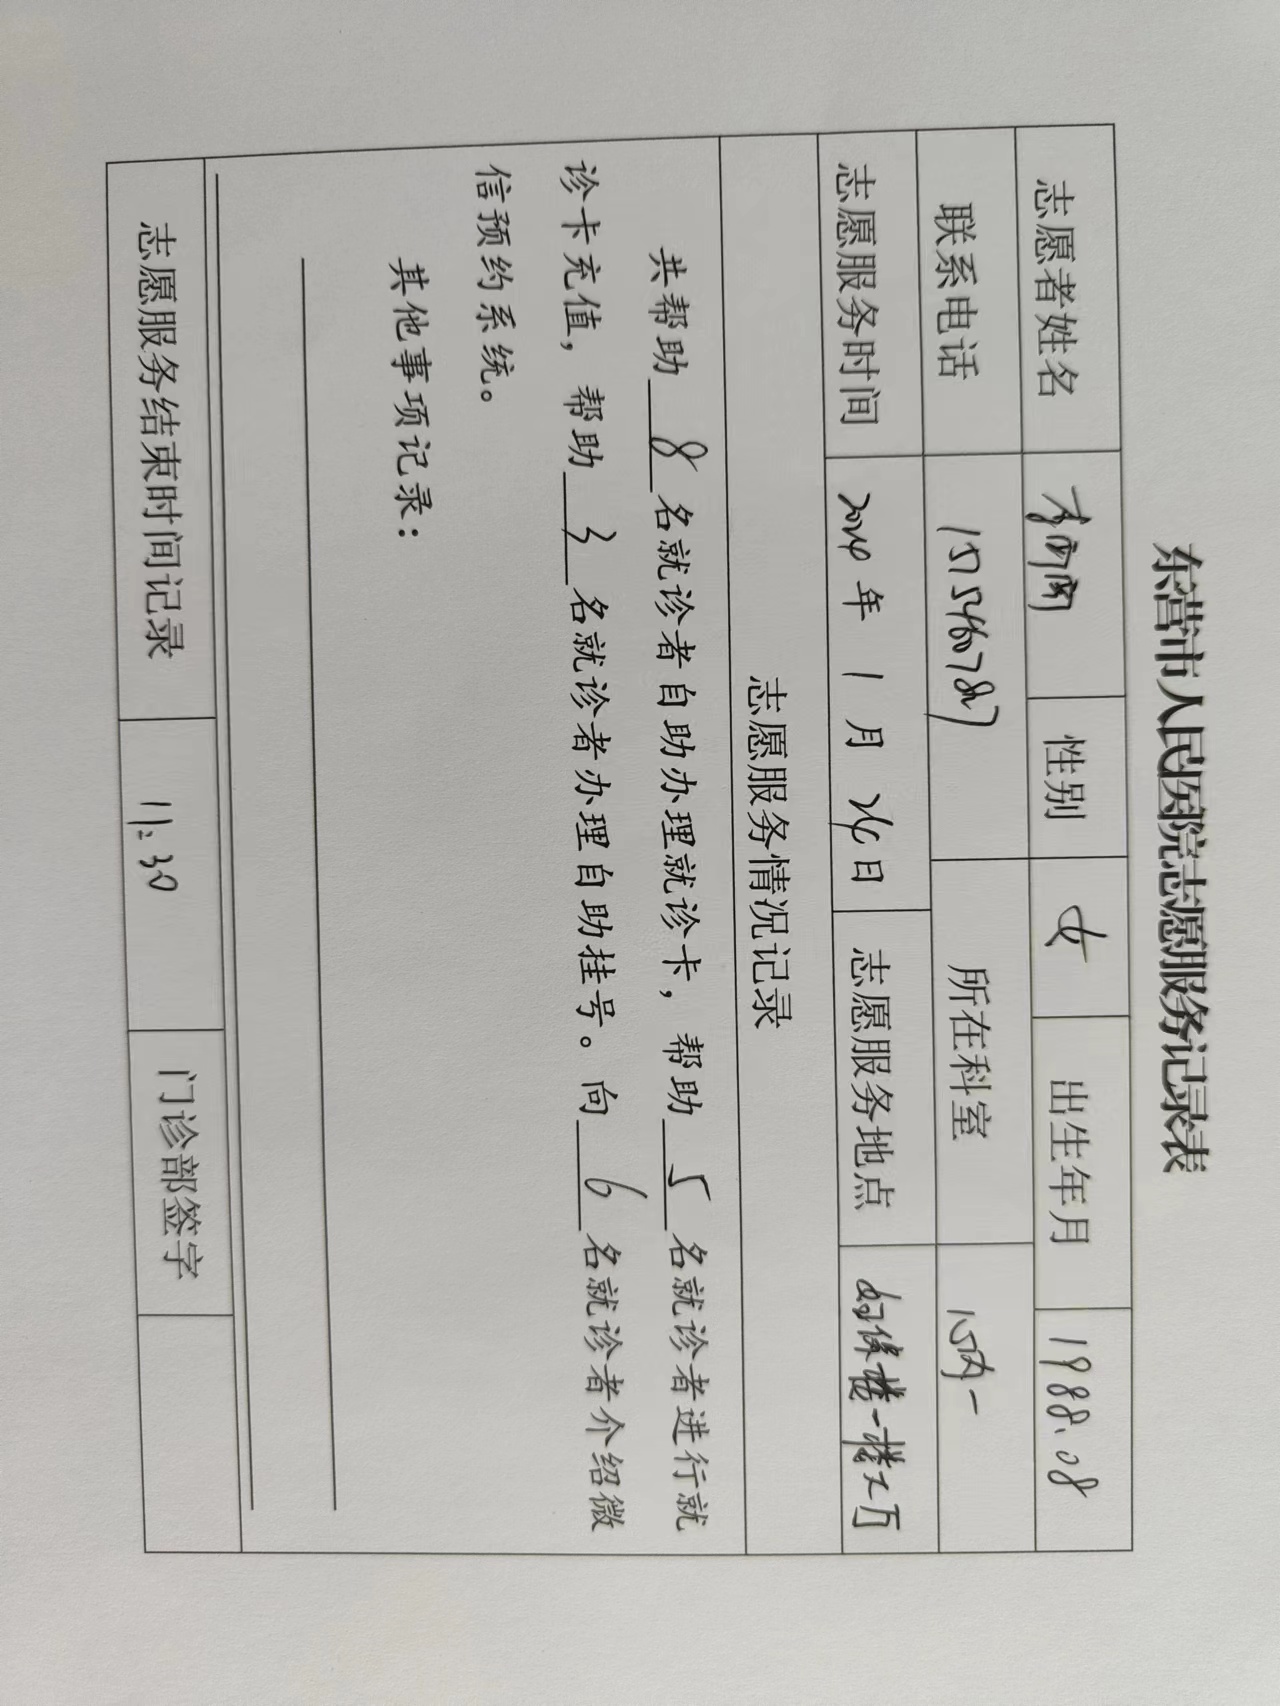 东营市人民医院志愿服务记录表
志愿者姓名 性别 女 出生年月 1988.08
联系电话 所在科室 心内一
志愿服务时间 2024年 1月 24日 志愿服务地点 妇保楼一楼大厅
志愿服务情况记录
共帮助 8 名就诊者自助办理就诊卡，帮助 5 名就诊者进行就
诊卡充值，帮助 3 名就诊者办理自助挂号。向 6 名就诊者介绍微
信预约系统。
其他事项记录：
志愿服务结束时间记录 11:30 门诊部签字